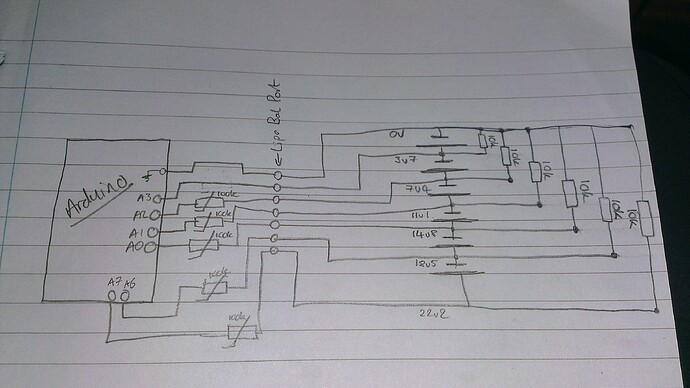 Arduino
A3
A2
A1
A0
A7 A6
100k
100k
100k
100k
100k
← Lipo Bal Port
0V
3v7
7v4
11v1
14v8
18v5
22v2
10k
10k
10k
10k
10k
10k